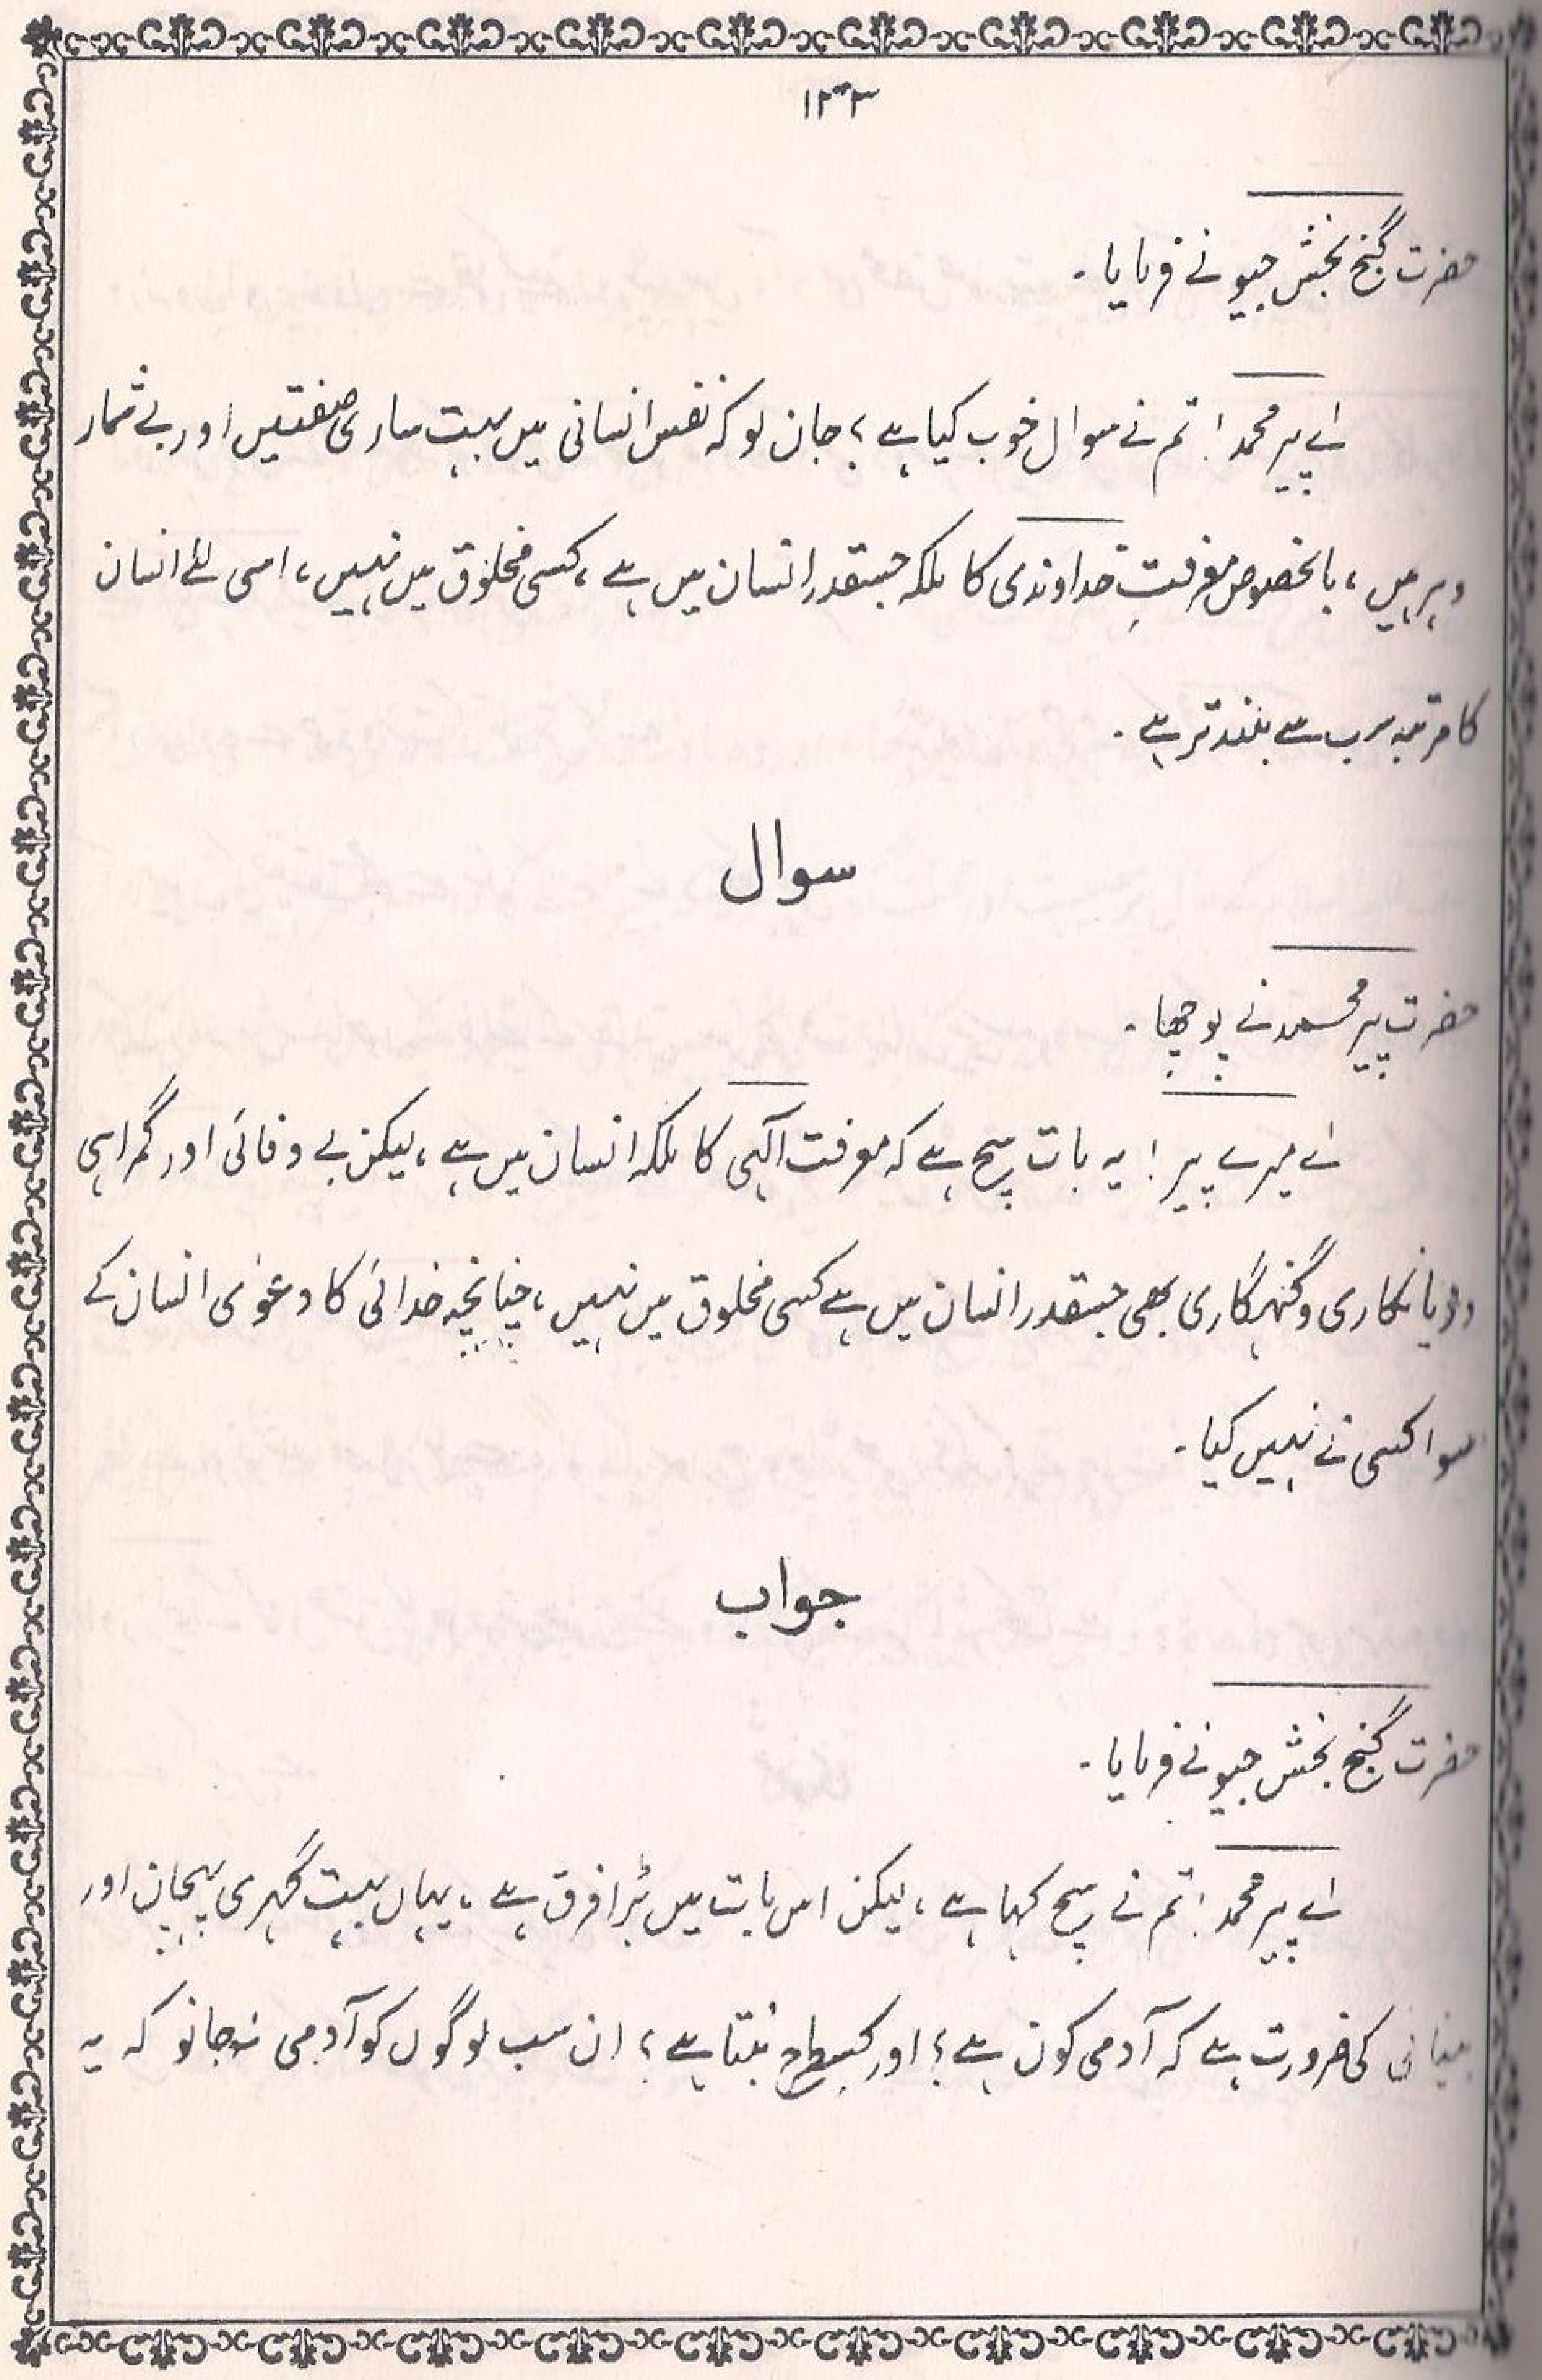 ۱۲۳
حضرت گنج بخش جیو نے فرمایا۔
اے پیر محمد! تم نے سوال خوب کیا ہے؛ جان لو کہ نفس انسانی میں بہت ساری صفتیں اور بے شمار
وہر ہیں، بالخصوص معرفتِ خداوندی کا ملکہ جسقدر انسان میں ہے، کسی مخلوق میں نہیں، اسی لئے انسان
کا مرتبہ سب سے بلند تر ہے۔
سوال
حضرت پیر محمد نے پوچھا۔
اے میرے پیر! یہ بات سچ ہے کہ معرفت الٰہی کا ملکہ انسان میں ہے، لیکن بے وفائی اور گمراہی
و زیانکاری و گنہگاری بھی جسقدر انسان میں ہے کسی مخلوق میں نہیں، چنانچہ خدائی کا دعوٰی انسان کے
سوا کسی نے نہیں کیا۔
جواب
حضرت گنج بخش جیو نے فرمایا۔
اے پیر محمد! تم نے سچ کہا ہے، لیکن اس بات میں بڑا فرق ہے، یہاں بہت گہری پہچان اور
بینائی کی ضرورت ہے کہ آدمی کون ہے؟ اور کسطرح بنتا ہے؟ ان سب لوگوں کو آدمی نہ جانو کہ یہ